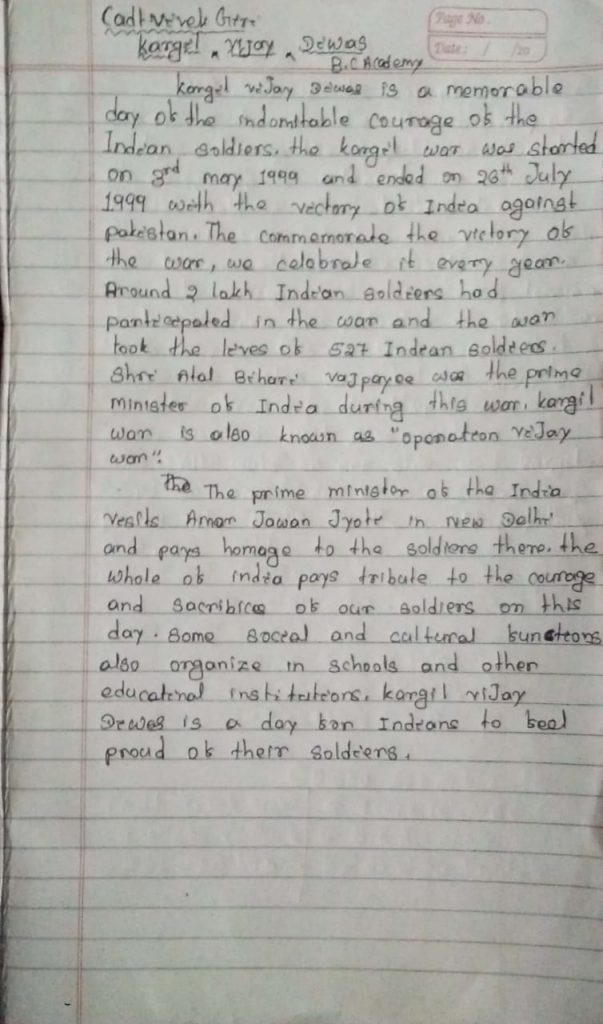 Cadt vivek Giri
Page No.
Date: / /20
Kargil Vijay Diwas
B.C Academy
kargil viJay Diwas is a memorable
day of the indomitable courage of the
Indian soldiers. the kargil war was started
on 3rd may 1999 and ended on 26th July
1999 with the victory of India against
pakistan. The commemorate the victory of
the war, we celebrate it every year.
Around 2 lakh Indian soldiers had
participated in the war and the war
took the lives of 527 Indian soldiers.
Shri Atal Bihari vajpayee was the prime
minister of India during this war. kargil
war is also known as "operation viJay
war".
The The prime minister of the India
visits Amar Jawan Jyoti in New Delhi
and pays homage to the soldiers there. the
whole of india pays tribute to the courage
and sacrifices of our soldiers on this
day. some social and cultural functions
also organize in schools and other
educatinal institutions. kargil viJay
Diwas is a day for Indians to feel
proud of their soldiers.